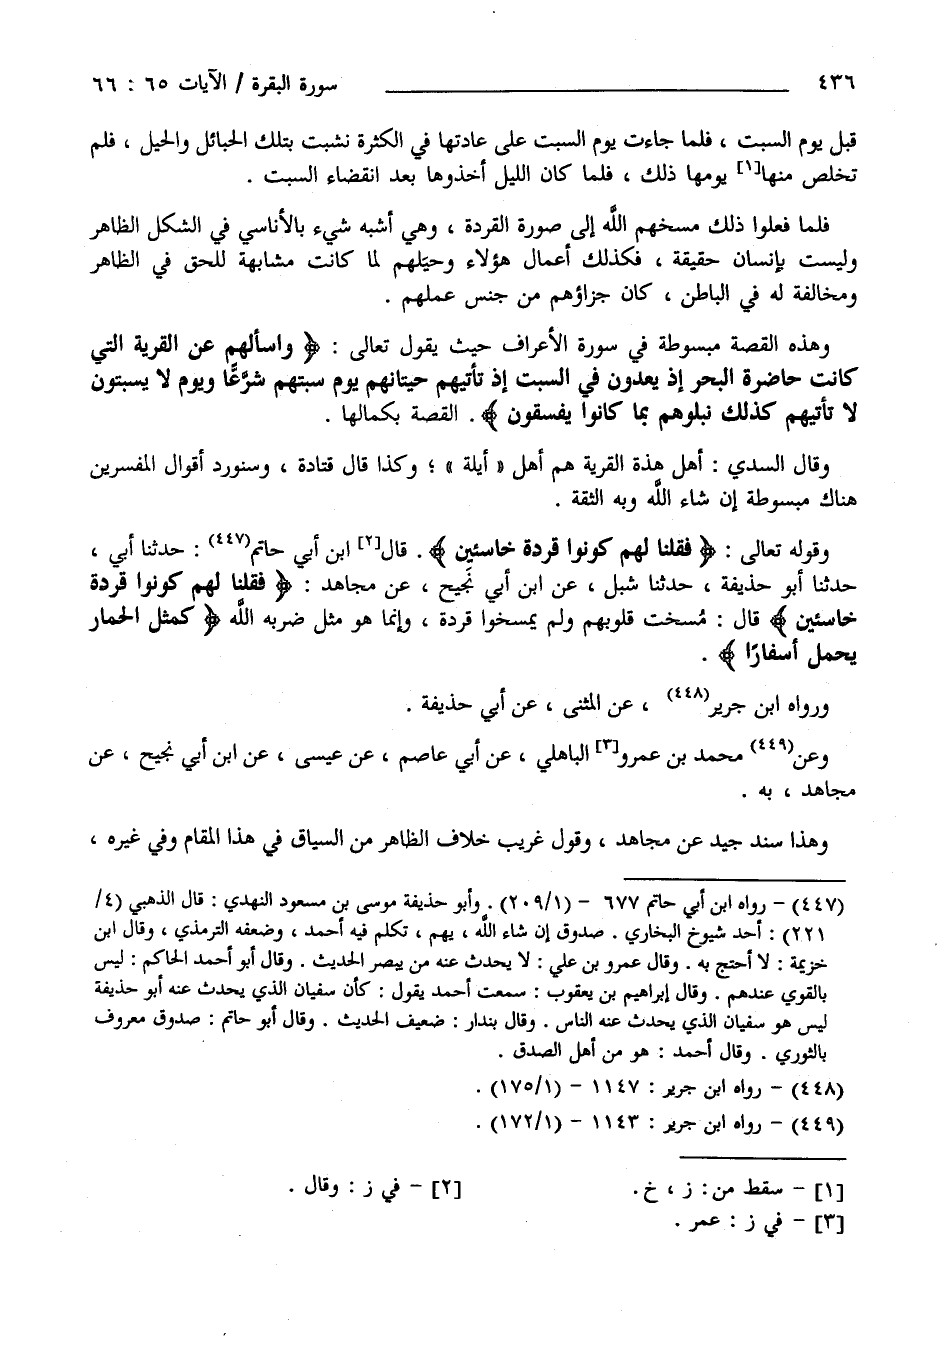 ٤٣٦ سورة البقرة / الآيات ٦٥ : ٦٦
قبل يوم السبت ، فلما جاءت يوم السبت على عادتها في الكثرة نشبت بتلك الحبائل والحيل ، فلم
تخلص منها[١] يومها ذلك ، فلما كان الليل أخذوها بعد انقضاء السبت .
فلما فعلوا ذلك مسخهم اللَّه إلى صورة القردة ، وهي أشبه شيء بالأناسي في الشكل الظاهر
وليست بإنسان حقيقة ، فكذلك أعمال هؤلاء وحيَلهم لما كانت مشابهة للحق في الظاهر
ومخالفة له في الباطن ، كان جزاؤهم من جنس عملهم .
وهذه القصة مبسوطة في سورة الأعراف حيث يقول تعالى : ﴿ واسألهم عن القرية التي
كانت حاضرة البحر إذ يعدون في السبت إذ تأتيهم حيتانهم يوم سبتهم شرَّعًا ويوم لا يسبتون
لا تأتيهم كذلك نبلوهم بما كانوا يفسقون ﴾ . القصة بكمالها .
وقال السدي : أهل هذة القرية هم أهل « أيلة » ؛ وكذا قال قتادة ، وسنورد أقوال المفسرين
هناك مبسوطة إن شاء اللَّه وبه الثقة .
وقوله تعالى : ﴿ فقلنا لهم كونوا قردة خاسئين ﴾ . قال[٢] ابن أبي حاتم(٤٤٧) : حدثنا أبي ،
حدثنا أبو حذيفة ، حدثنا شبل ، عن ابن أبي نَجيح ، عن مجاهد : ﴿ فقلنا لهم كونوا قردة
خاسئين ﴾ قال : مُسخت قلوبهم ولم يمسخوا قردة ، وإنما هو مثل ضربه اللَّه ﴿ كمثل الحمار
يحمل أسفارًا ﴾ .
ورواه ابن جرير(٤٤٨) ، عن المثنى ، عن أبي حذيفة .
وعن(٤٤٩) محمد بن عمرو[٣] الباهلي ، عن أبي عاصم ، عن عيسى ، عن ابن أبي نجيح ، عن
مجاهد ، به .
وهذا سند جيد عن مجاهد ، وقول غريب خلاف الظاهر من السياق في هذا المقام وفي غيره ،
(٤٤٧) – رواه ابن أبي حاتم ٦٧٧ – (٢٠٩/١) . وأبو حذيفة موسى بن مسعود النهدي : قال الذهبي (٤/
٢٢١) : أحد شيوخ البخاري . صدوق إن شاء اللَّه ، يهم ، تكلم فيه أحمد ، وضعفه الترمذي ، وقال ابن
خزيمة : لا أحتج به . وقال عمرو بن علي : لا يحدث عنه من يبصر الحديث . وقال أبو أحمد الحاكم : ليس
بالقوي عندهم . وقال إبراهيم بن يعقوب : سمعت أحمد يقول : كأن سفيان الذي يحدث عنه أبو حذيفة
ليس هو سفيان الذي يحدث عنه الناس . وقال بندار : ضعيف الحديث . وقال أبو حاتم : صدوق معروف
بالثوري . وقال أحمد : هو من أهل الصدق .
(٤٤٨) – رواه ابن جرير : ١١٤٧ – (١٧٥/١) .
(٤٤٩) – رواه ابن جرير : ١١٤٣ – (١٧٢/١) .
[١] – سقط من: ز ، خ. [٢] – في ز : وقال .
[٣] – في ز : عمر .